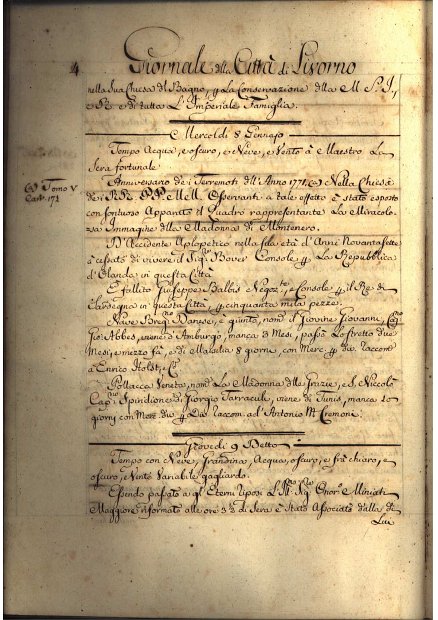 4
Giornale della Città di Livorno
nella sua Chiesa del Bagno, p La Conservazione della M. S. I.,
e R. e di tutta L'Imperiale Famiglia.
Mercoldi 8 Gennajo
Tempo Acqua, e oscuro, e Neve, e Vento à Maestro La
Sera fortunale
(a) Tomo V
Cart. 171
Anniversario dei Terremoti dell'Anno 1771. (a) Nella Chiesa
dei R.R. P.P. M.M. Osservanti a tale effetto è stato esposto
con sontuoso Apparato il Quadro rappresentante La Miracolo-
sa Immagine della Madonna di Montenero.
D'Accidente Aplopetico nella fila età d'Anni Novantasette
è cessato di vivere il Sig. Bover Console p La Repubblica
d'Olanda in questa Città
È fallito Giuseppe Balbis Negoz.te, e Console p il Re di
Sardegna in questa Città, p cinquanta mila pezze.
Nave Brig. Danese, è giunta, nom. il Giovine Giovanni, Cap.
Gio Abbes, viene d'Amburgo, manca 3 Mesi, passò Lo stretto due
Mesi, e mezzo fà, e di Malaulia 8 giorni, con Merc. p div. raccom.
à Enrico Holst, e C.
Pollacca Veneta, nom. La Madonna delle Grazie, e S. Niccolò
Cap.no Spiridione di Giorgio Tarracule, viene di Tunis, manca 20
giorni con Merc. div. p Div. raccom. ad'Antonio M. Cremone.
Giovedi 9 Detto
Tempo con Neve, Grandina, Acqua, oscuro, e frà chiaro, e
oscuro, Vento Variabile gagliardo.
Essendo passato a gl'Eterni riposi L'Ill. Sig. Onor. e Miniati
Maggiore riformato alle ore 3½ di Sera è Stato Associato dalla di
Lui